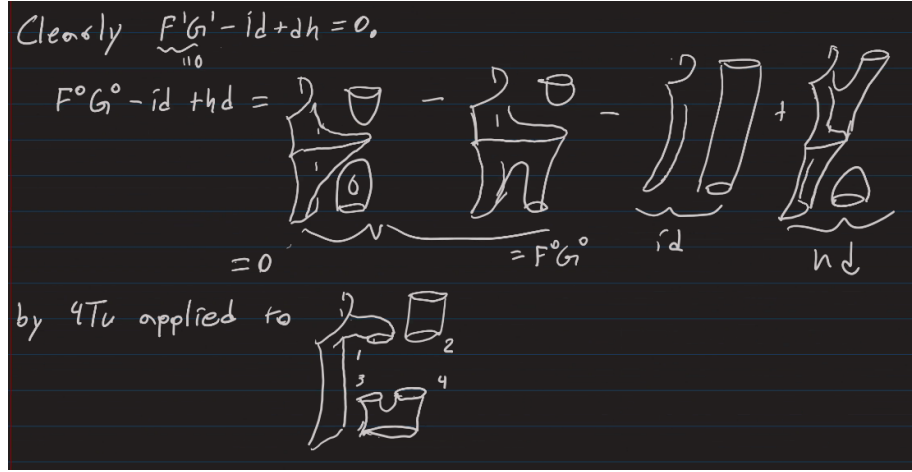 Clearly F'G' - id + dh = 0.
"0
F⁰G⁰ - id + hd = - - +
= 0 = F⁰G⁰ id hd
by 4Tu applied to
1 2
3 4